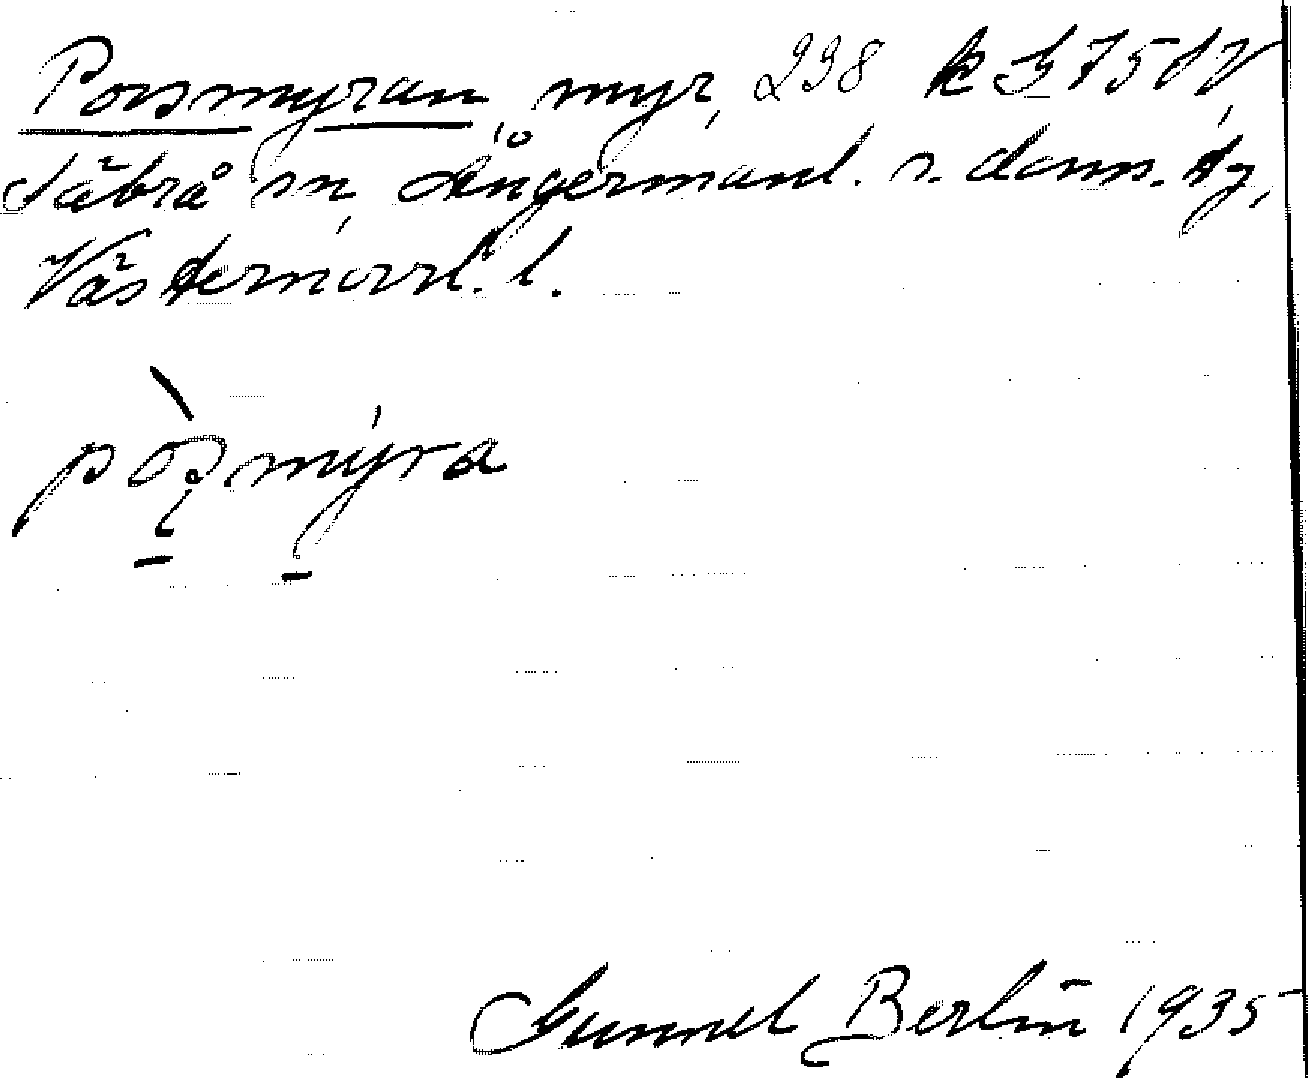 Porsmyran, myr, 238 k 375 IV,
Säbrå sn, Ångermanl. s. doms. tg,
Västernorrl. l.
pòʂmýra
Gunnel Berlin 1935